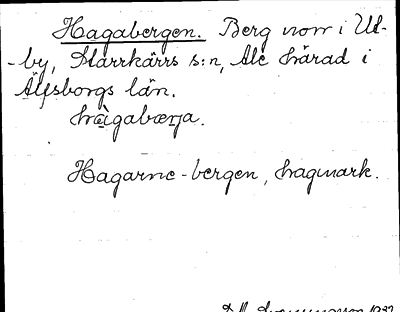 Hagabergen. Berg norr i Ul-
-by, Starrkärrs s:n, Ale härad i
Älfsborgs län.
hàgabærja.
Hagarne-bergen, hagmark.
1932